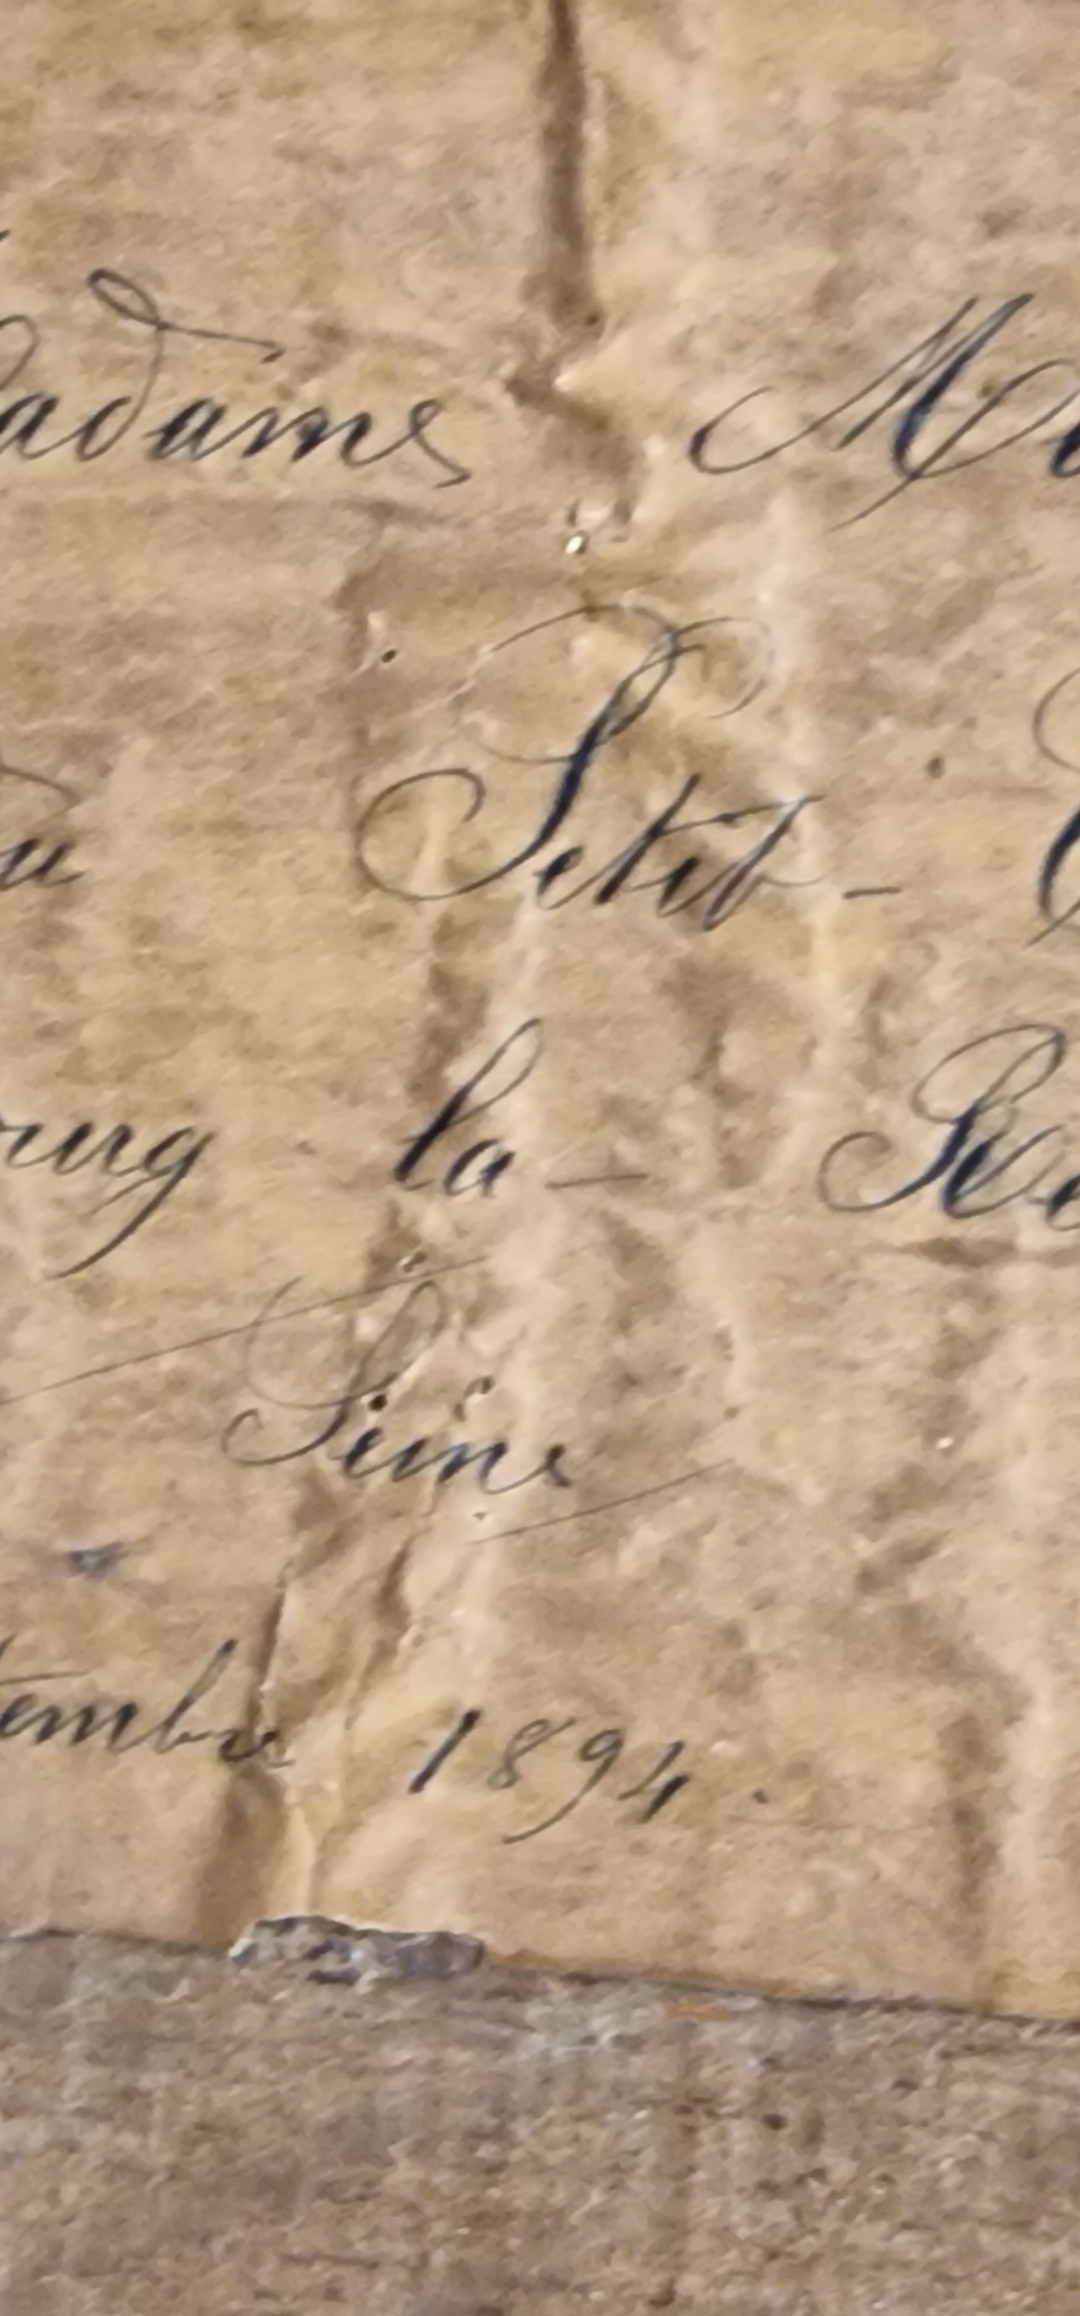 adame M
u Petit-
ourg la-Re
Seine
tembre 1894.